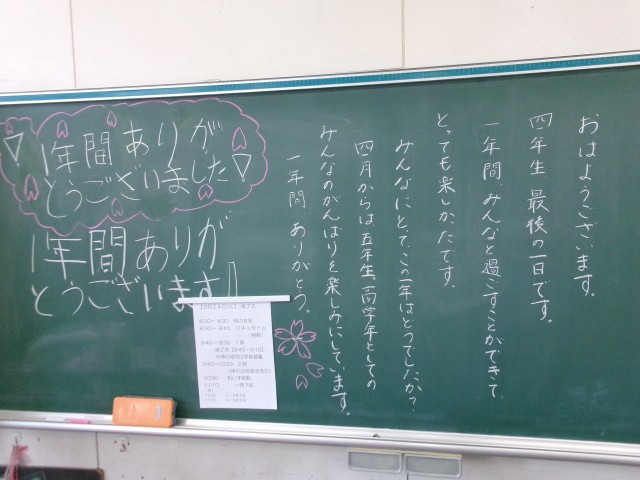 おはようございます。
四年生 最後の一日です。
一年間、みんなと過ごすことができて、
とっても楽しかったです。
みんなにとって、この一年はどうでしたか？
四月からは、五年生、高学年としての
みんなのがんばりを楽しみにしています。
一年間、ありがとう。
1年間ありが
とうございました
1年間ありが
とうございます